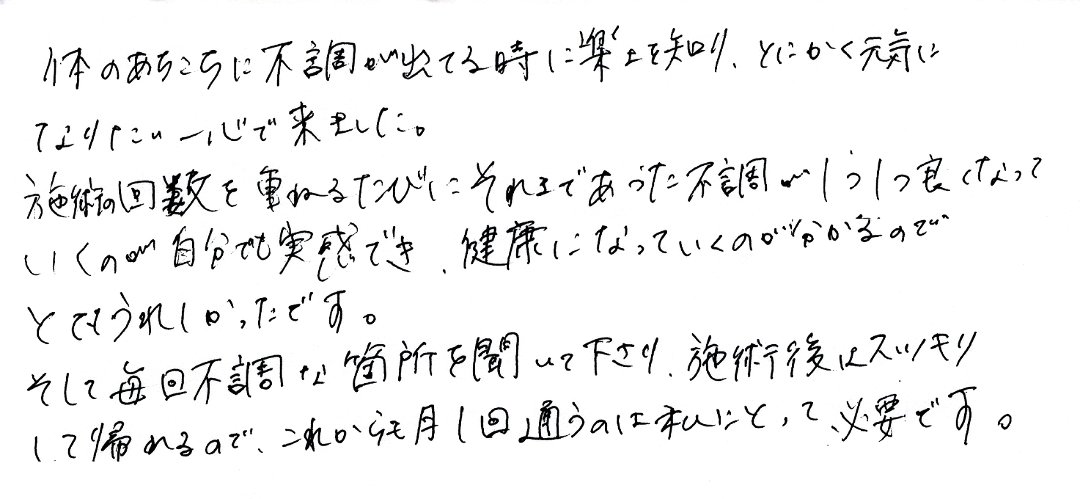 体のあちこちに不調が出てる時に楽々を知り、とにかく元気に
なりたい一心で来ました。
施術の回数を重ねるたびにそれまであった不調が1つ1つ良くなって
いくのが自分でも実感でき、健康になっていくのが分かるので
とてもうれしかったです。
そして毎回不調な箇所を聞いて下さり、施術後はスッキリ
して帰れるので、これからも月1回通うのは私にとって必要です。